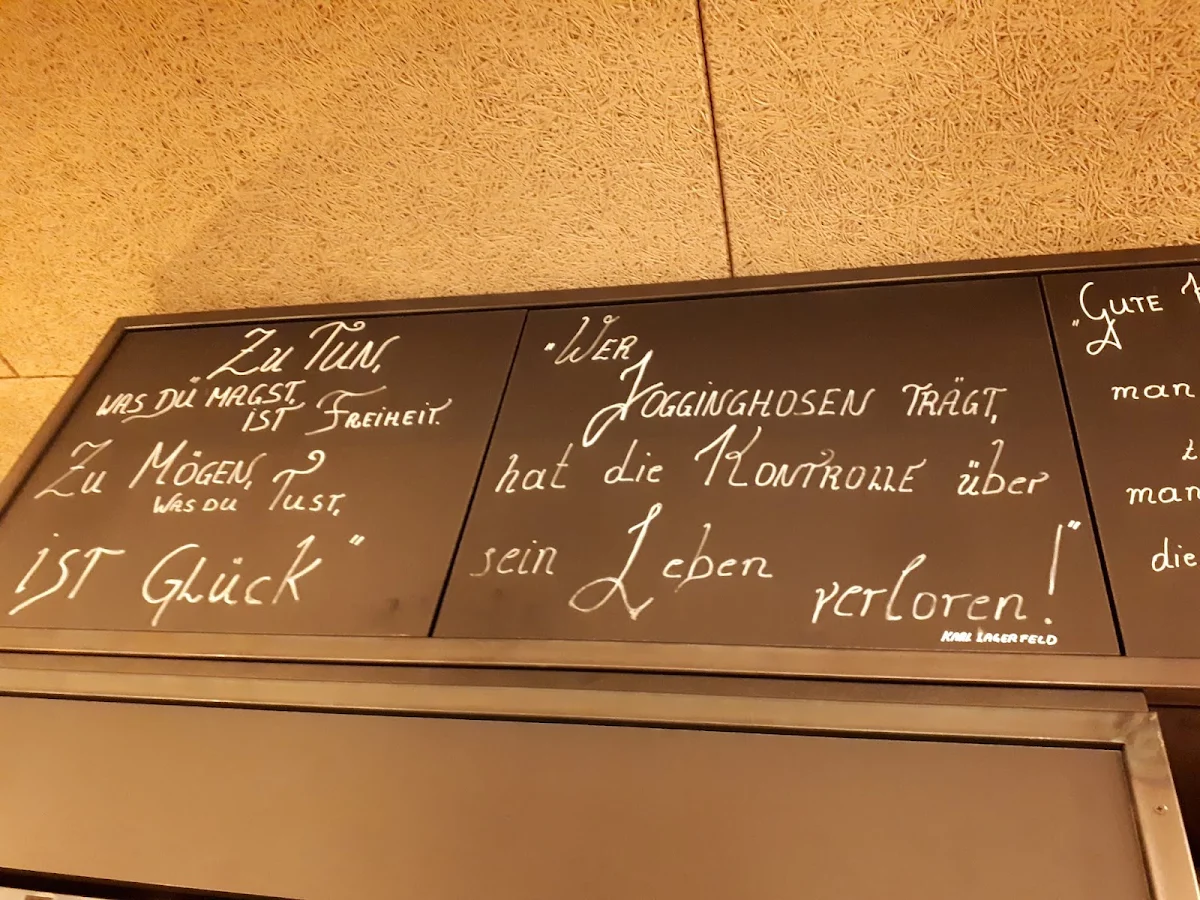 Zu TUN,
WAS DU MAGST,
IST FREIHEIT.
Zu MÖGEN,
WAS DU TUST,
IST GLÜCK"
"WER
JOGGINGHOSEN TRÄGT,
hat die KONTROLLE über
sein Leben
verloren!"
KARL LAGERFELD
"GUTE
man
man
die